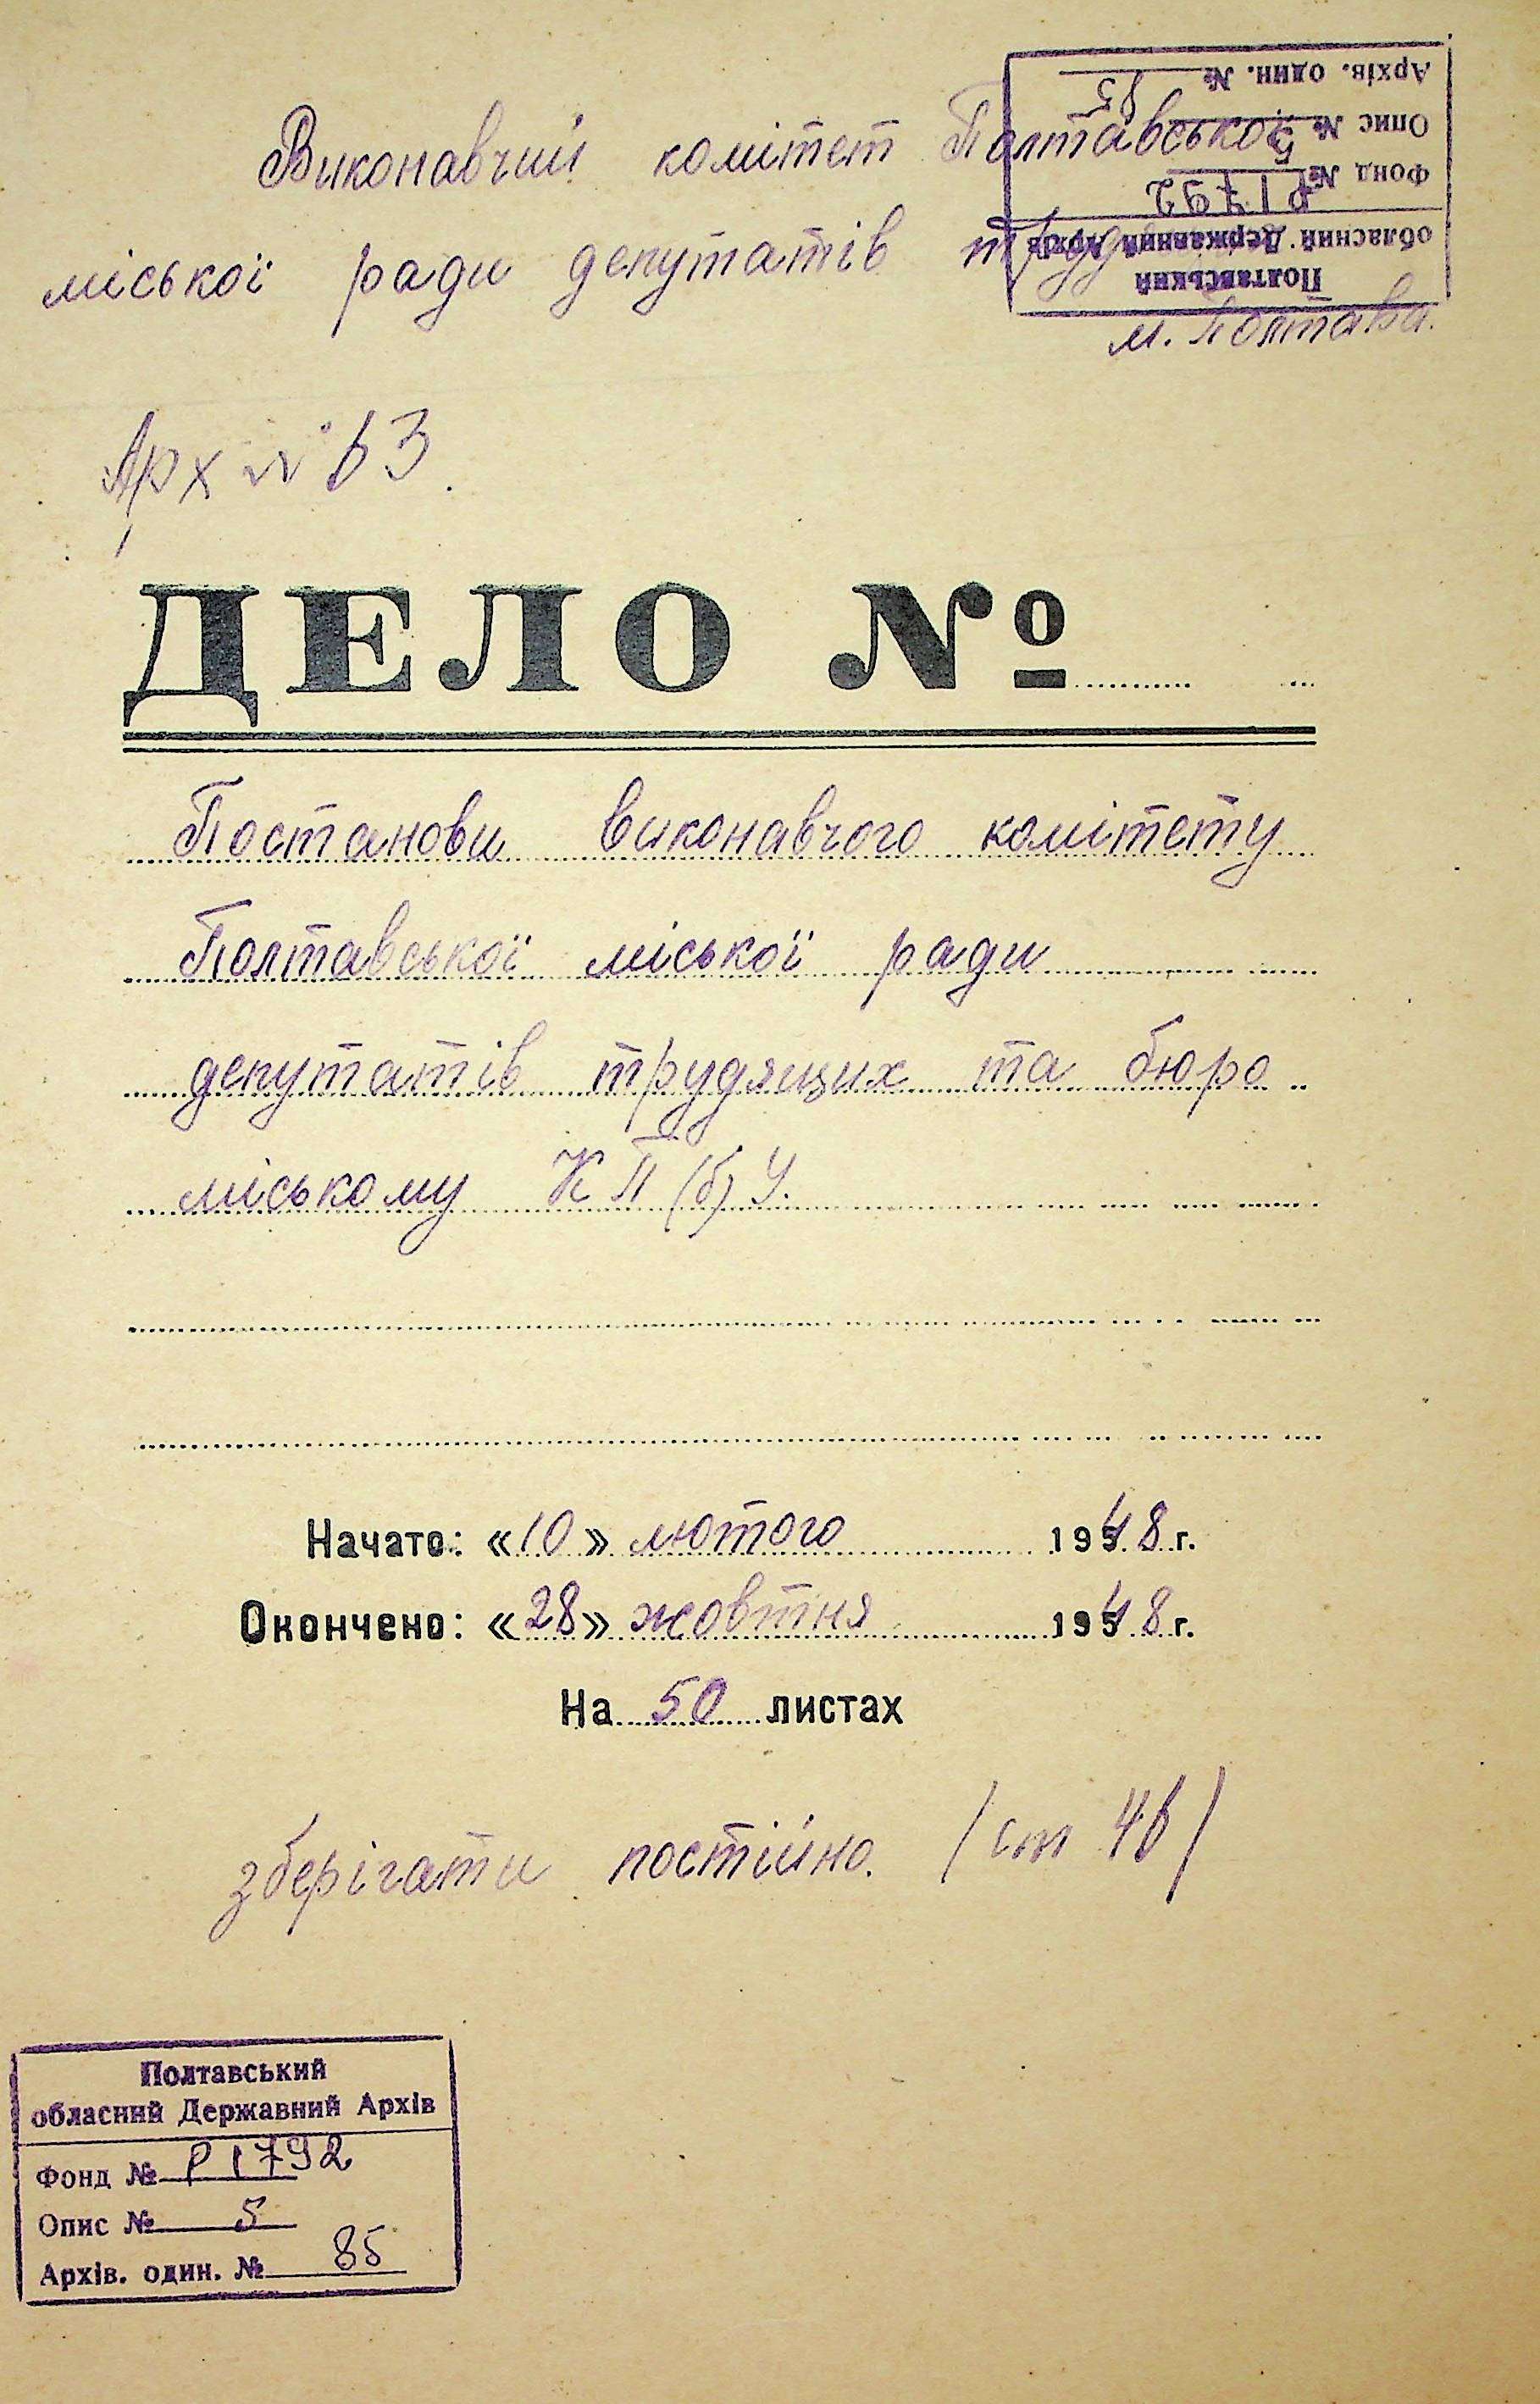 Виконавчий комітет Полтавської
міської ради депутатів
м. Полтава.
Архів. один. № 85
Опис № 5
Фонд № Р1792
обласний Державний Архів
Полтавський
Арх № 63.
ДЕЛО №
Постанови виконавчого комітету
Полтавської міської ради
депутатів трудящих та бюро
міському КП(б)У.
Начато: «10» лютого 1948 г.
Окончено: «28» жовтня 1948 г.
На 50 листах
зберігати постійно. (ст 46)
Полтавський
обласний Державний Архів
Фонд № Р1792
Опис № 5
Архів. один. № 85